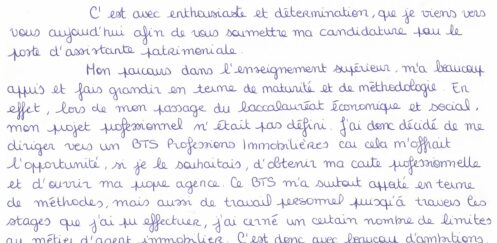 C'est avec enthousiaste et détermination, que je viens vers
vous aujourd'hui afin de vous soumettre ma candidature pour le
poste d'assistante patrimoniale.
Mon parcours dans l'enseignement supérieur, m'a beaucoup
appris et fais grandir en terme de maturité et de méthodologie. En
effet, lors de mon passage du baccalauréat économique et social,
mon projet professionnel n'était pas défini. J'ai donc décidé de me
diriger vers un BTS Professions Immobilières car cela m'offrait
l'opportunité, si je le souhaitais, d'obtenir ma carte professionnelle
et d'ouvrir ma propre agence. Ce BTS m'a surtout apporté en terme
de méthodes, mais aussi de travail personnel jusqu'à travers les
stages que j'ai pu effectuer, j'ai cerné un certain nombre de limites
au métier d'agent immobilier. C'est donc avec beaucoup d'ambitions